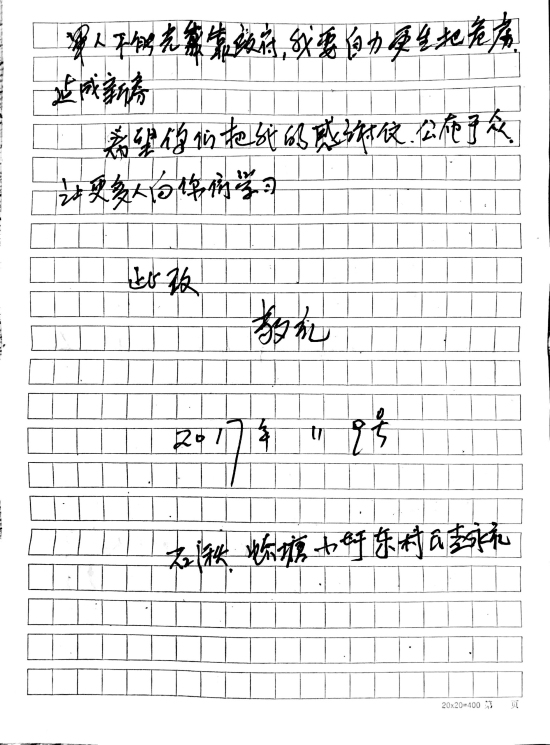 人不能光靠政府,我要自力更生把危房
造成新房
希望你们把我的感谢信.公布于众.
让更多人向你们学习
此致
敬礼
2017年 11 9号
东村民李永礼
20x20=400 第 页